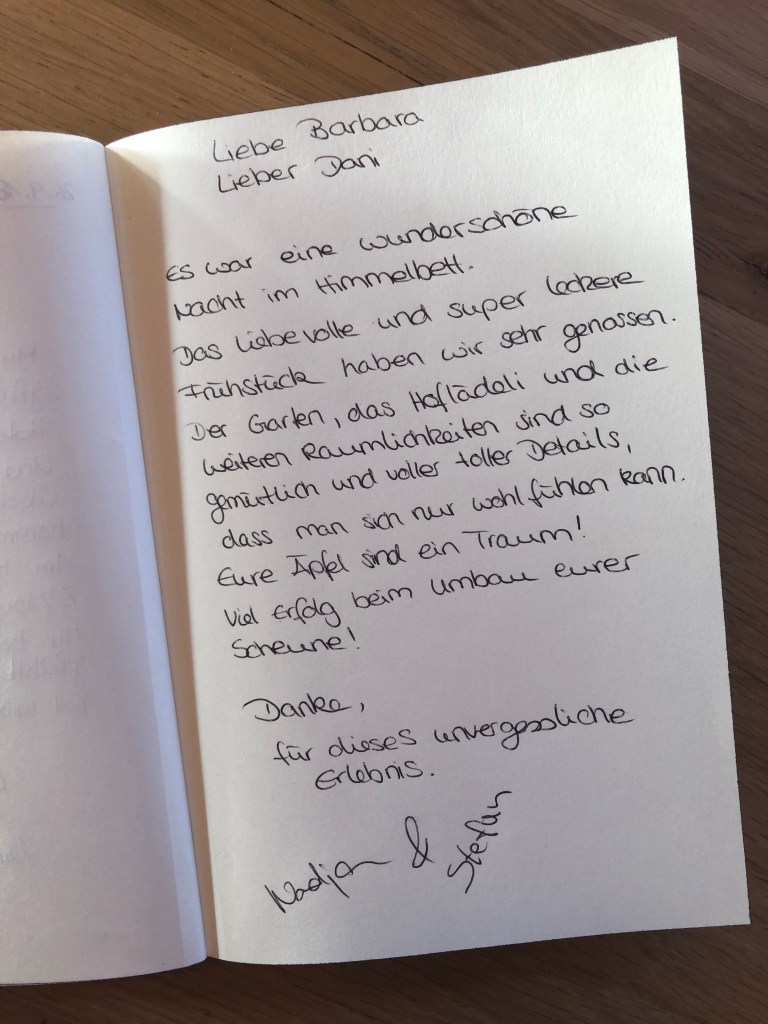 Liebe Barbara
Lieber Dani
Es war eine wunderschöne
Nacht im Himmelbett.
Das liebevolle und super lockere
Frühstück haben wir sehr genossen.
Der Garten, das Houflädeli und die
weiteren Räumlichkeiten sind so
gemütlich und voller toller Details,
dass man sich nur wohl fühlen kann.
Eure Äpfel sind ein Traum!
Viel Erfolg beim Umbau eurer
Scheune!
Danke,
für dieses unvergessliche
Erlebnis.
Nadja & Stefan